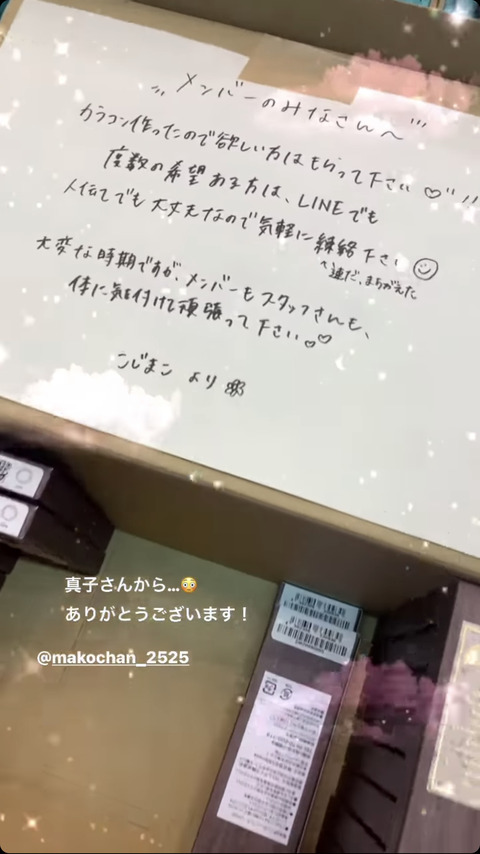 メンバーのみなさんへ
カラコン作ったので欲しい方はもらって下さい♡
度数の希望ある方は、LINEでも
人伝てでも大丈夫なので気軽に練絡下さい☺
↑連だ、まちがえた
大変な時期ですが、メンバーもスタッフさんも、
体に気を付けて頑張って下さい♡♡
こじまこ より
真子さんから...😳
ありがとうございます！
@makochan_2525